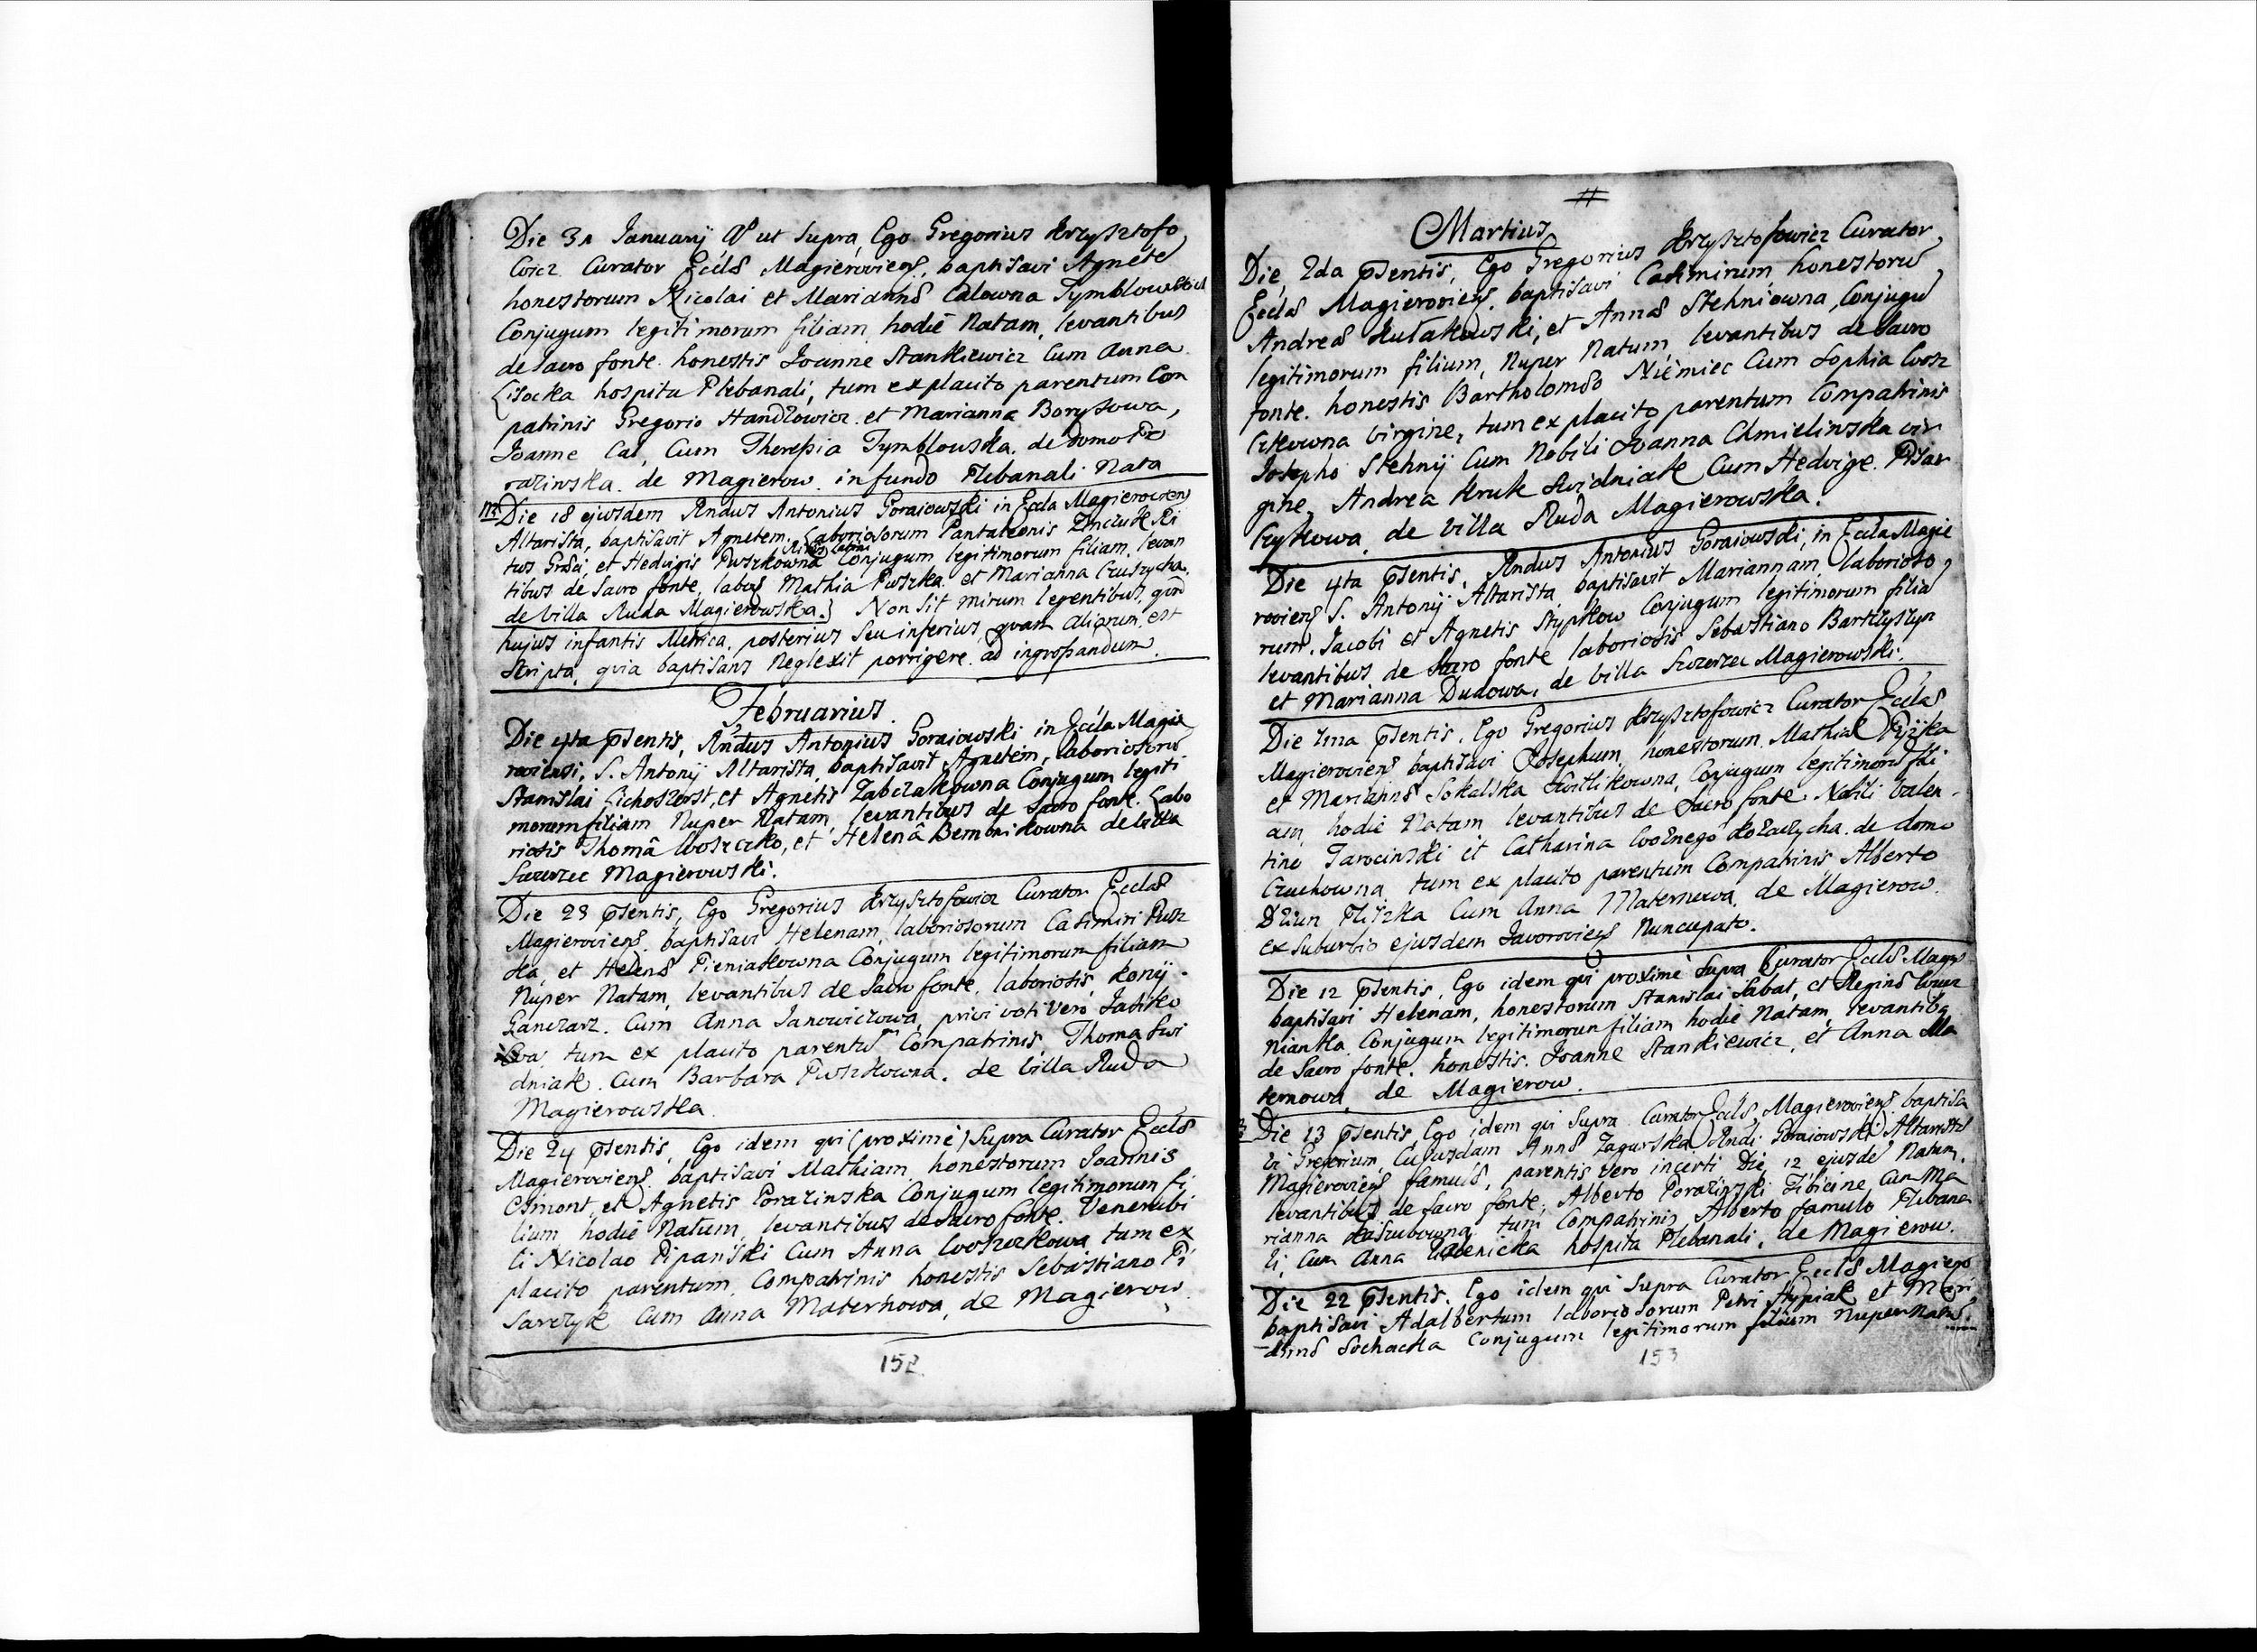 Die 31 Januarij Aº ut Supra, Ego Gregorius Krzysztofo
wicz Curator Ecclæ Magieroviens, baptisavi Agnete
honestorum Nicolai et Mariannæ Calowna Tymblowskich
Conjugum legitimorum filiam, hodiè Natam, levantibus
de Sacro fonte honestis Joanne Stankiewicz Cum Anna
Lisocka hospita Plebanali, tum ex placito parentum Com
patrinis Gregorio Handlowicz et Marianna Borysowa,
Joanne Cal, Cum Theressia Tymblowska de domo Po
razinska de Magierow in fundo Plebanali Nata
Die 18 ejusdem Rndus Antonius Goraiowski in Eccla Magieroviens
Altarista, baptisavit Agnetem, Laboriosorum Pantaleonis Ri
tus Græci et Hedvigis Puszkowna Ritus latini Conjugum legitimorum filiam, levan
tibus de Sacro fonte, labos Mathia Puszka et Marianna Cruszycha
de villa Ruda Magierowska.} Non Sit mirum legentibus, quod
hujus infantis Metrica, posterius Seu inferius, quam aliorum est
Scripta, quia baptisans Neglexit porrigere ad ingrossandum.
Februarius.
Die 4ta psentis, Rndus Antonius Goraiowski in Eccla Magie
roviensi, S. Antonij Altarista, baptisavit Agnetem, laboriosoru
Stanislai Lichoszerst, et Agnetis Zabczakowna Conjugum legiti
morum filiam Nuper Natam, levantibus de Sacro fonte Labo
riosis Thomâ Woszczko, et Helenâ Bembnikowna de villa
Szczerzec Magierowski.
Die 23 psentis, Ego Gregorius Krzysztofowicz Curator Ecclæ
Magieroviens baptisavi Helenam, laboriosorum Casimiri Pusz
ka, et Helenæ Pieniakowna Conjugum legitimorum filiam
Nuper Natam, levantibus de Sacro fonte, laboriosis,
Ganczarz Cum Anna Janowiczowa, privi voti verò
tum ex placito parentu Compatrinis, Thoma Swi
dniak Cum Barbara Puszkowna, de villa Ruda
Magierowska
Die 24 psentis, Ego idem qui (proximè) Supra Curator Ecclæ
Magieroviens baptisavi Mathiam, honestorum Joannis
et Agnetis Porazinska Conjugum legitimorum fi
lium hodiè Natum, levantibus de Sacro fonte Venerabi
li Nicolao Pipanski Cum Anna Woszczkowa, tum ex
placito parentum, Compatrinis honestis Sebastiano Pi
sarczyk Cum Anna Maternowa, de Magierow
152
Martius
Die 2da psentis, Ego Gregorius Krzysztofowicz Curator
Ecclæ Magieroviens baptisavi Casimirum, honestoru
Andreæ Kułakowski, et Annæ Stehniowna, Conjugu
legitimorum filium, Nuper Natum, levantibus de Sacro
fonte honestis Bartholomæo Niemiec Cum Sophia Wosz
czkowna virgine, tum ex placito parentum Compatrinis
Josepho Stehnij Cum Nobili Joanna Chmielinska vir
gine, Andrea Kruk Swidniak Cum Hedvige Pisar
czykowa, de villa Ruda Magierowska.
Die 4ta psentis, Rndus Antonius Goraiowski, in Eccla Magie
roviens S. Antonij Altarista baptisavit Mariannam, laborioso
rum Jacobi et Agnetis Stypkow Conjugum legitimorum filia
levantibus de Sacro fonte laboriosis Sebastiano Bartczyszyn
et Marianna Dudowa, de villa Szczerzec Magierowski.
Die 7ma psentis, Ego Gregorius Krzysztofowicz Curator Ecclæ
Magieroviens baptisavi Josephum, honestorum Mathiæ
et Mariannæ Sokalska Conjugum legitimoru fili
am, hodiè Natam, levantibus de Sacro fonte Nobili Valen
tino Jarocinski et Catharina de domo
Czuchowna tum ex placito parentum Compatrinis Alberto
Cum Anna Maternowa, de Magierow
ex Suburbio ejusdem Javoroviens Nuncupato.
Die 12 psentis, Ego idem qui proximè Supra Curator Ecclæ Magr
baptisavi Helenam, honestorum Stanislai Sabat, et Reginæ
nianka Conjugum legitimorum filiam hodiè Natam, levantibq
de Sacro fonte honestis Joanne Stankiewicz, et Anna Ma
ternowa, de Magierow.
Die 13 psentis Ego idem qui Supra Curator Ecclæ Magieroviens baptisa
vi Gregorium, Cujusdam Annæ Zagurska Rndi Goraiowski Altaristæ
Magieroviens famulæ, parentis vero incerti Die 12 ejusde Natum,
levantibus de Sacro fonte, Alberto Porazinski Tibicine Cum Ma
rianna tum Compatrinis Alberto famulo Plebana
li, Cum Anna hospita Plebanali, de Magierow.
Die 22 psentis, Ego idem qui Supra Curator Ecclæ Magiero
baptisavi Adalbertum laboriosorum Petri Stypiak et Mari
annæ Sochacka Conjugum legitimorum filium Nuper Natu
153